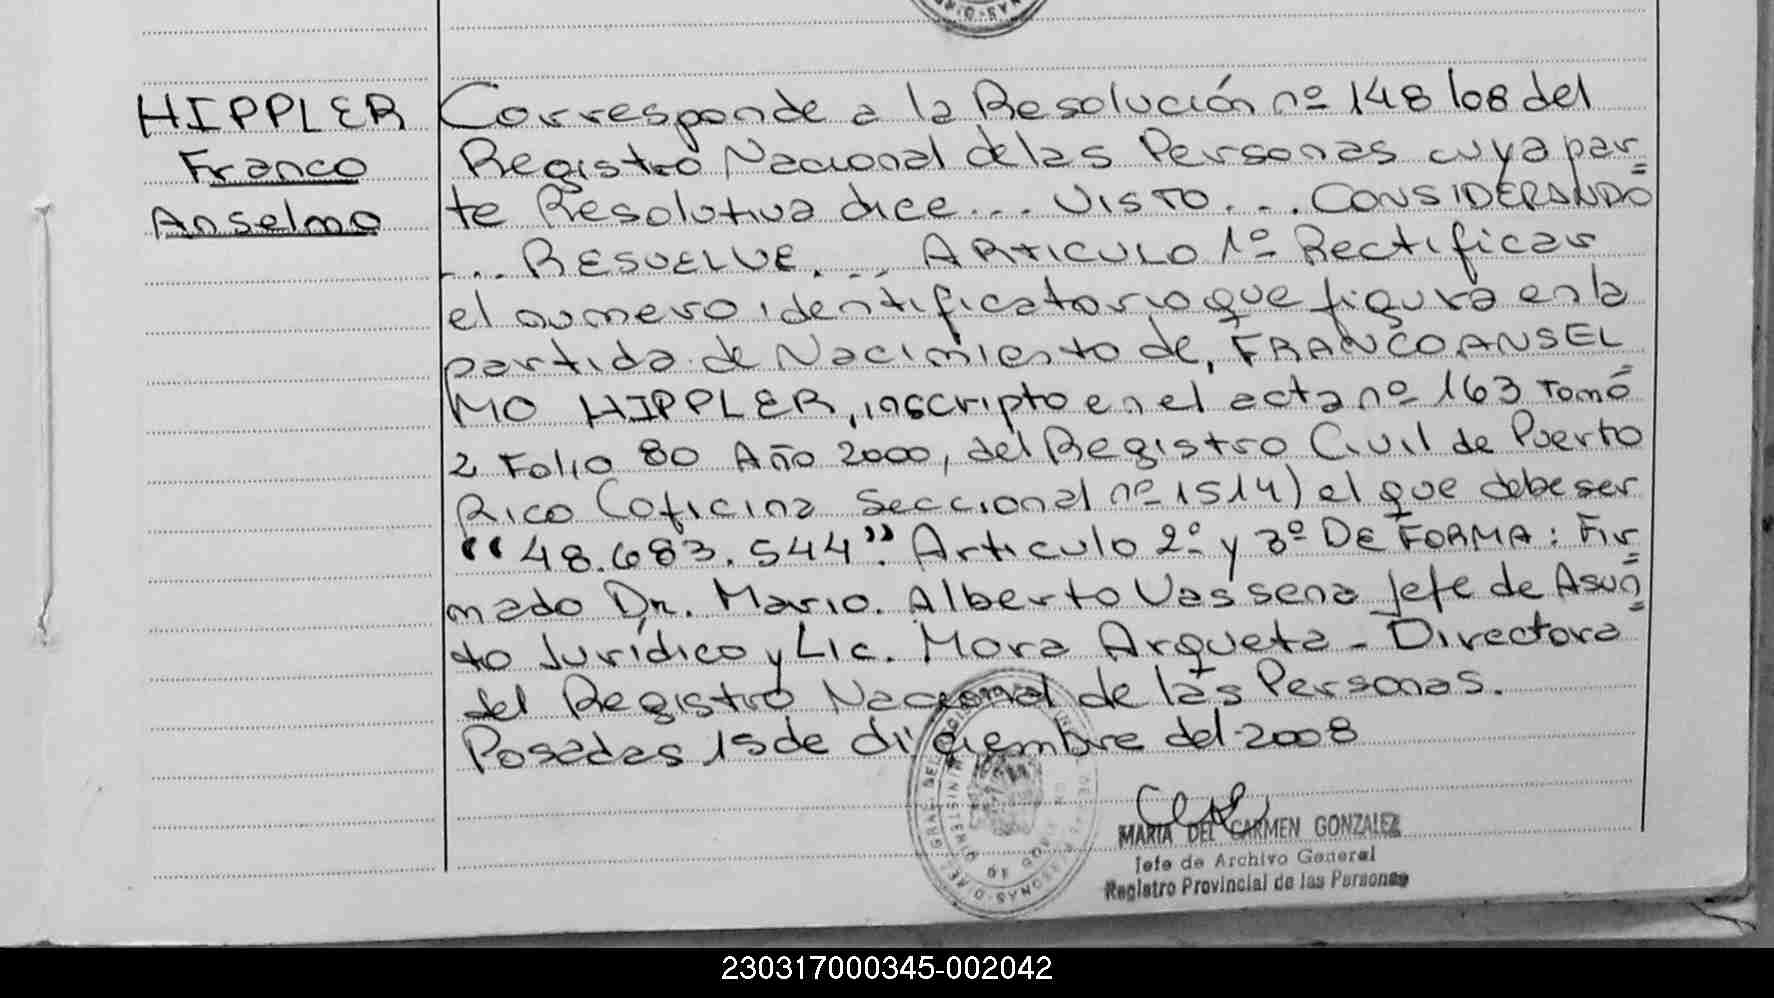 HIPPLER
Franco
Anselmo
Corresponde a la Resolución nº 148/08 del
Registro Nacional de las Personas cuya par=
te Resolutiva dice... VISTO... CONSIDERANDO
... RESUELVE... ARTICULO 1º Rectificar
el numero identificatorio que figura en la
partida de Nacimiento de, FRANCO ANSEL=
MO HIPPLER, inscripto en el acta nº 163 Tomo
2 Folio 80 Año 2000, del Registro Civil de Puerto
Rico (oficina Seccional nº 1514) el que debe ser
"48.683.544". Articulo 2º y 3º DE FORMA: Fir=
mado Dr. Mario. Alberto Vassena Jefe de Asun=
to Jurídico y Lic. Mora Arqueta - Directora
del Registro Nacional de las Personas.
Posadas 15 de diciembre del 2008
MARIA DEL CARMEN GONZALEZ
Jefe de Archivo General
Registro Provincial de las Personas
230317000345-002042